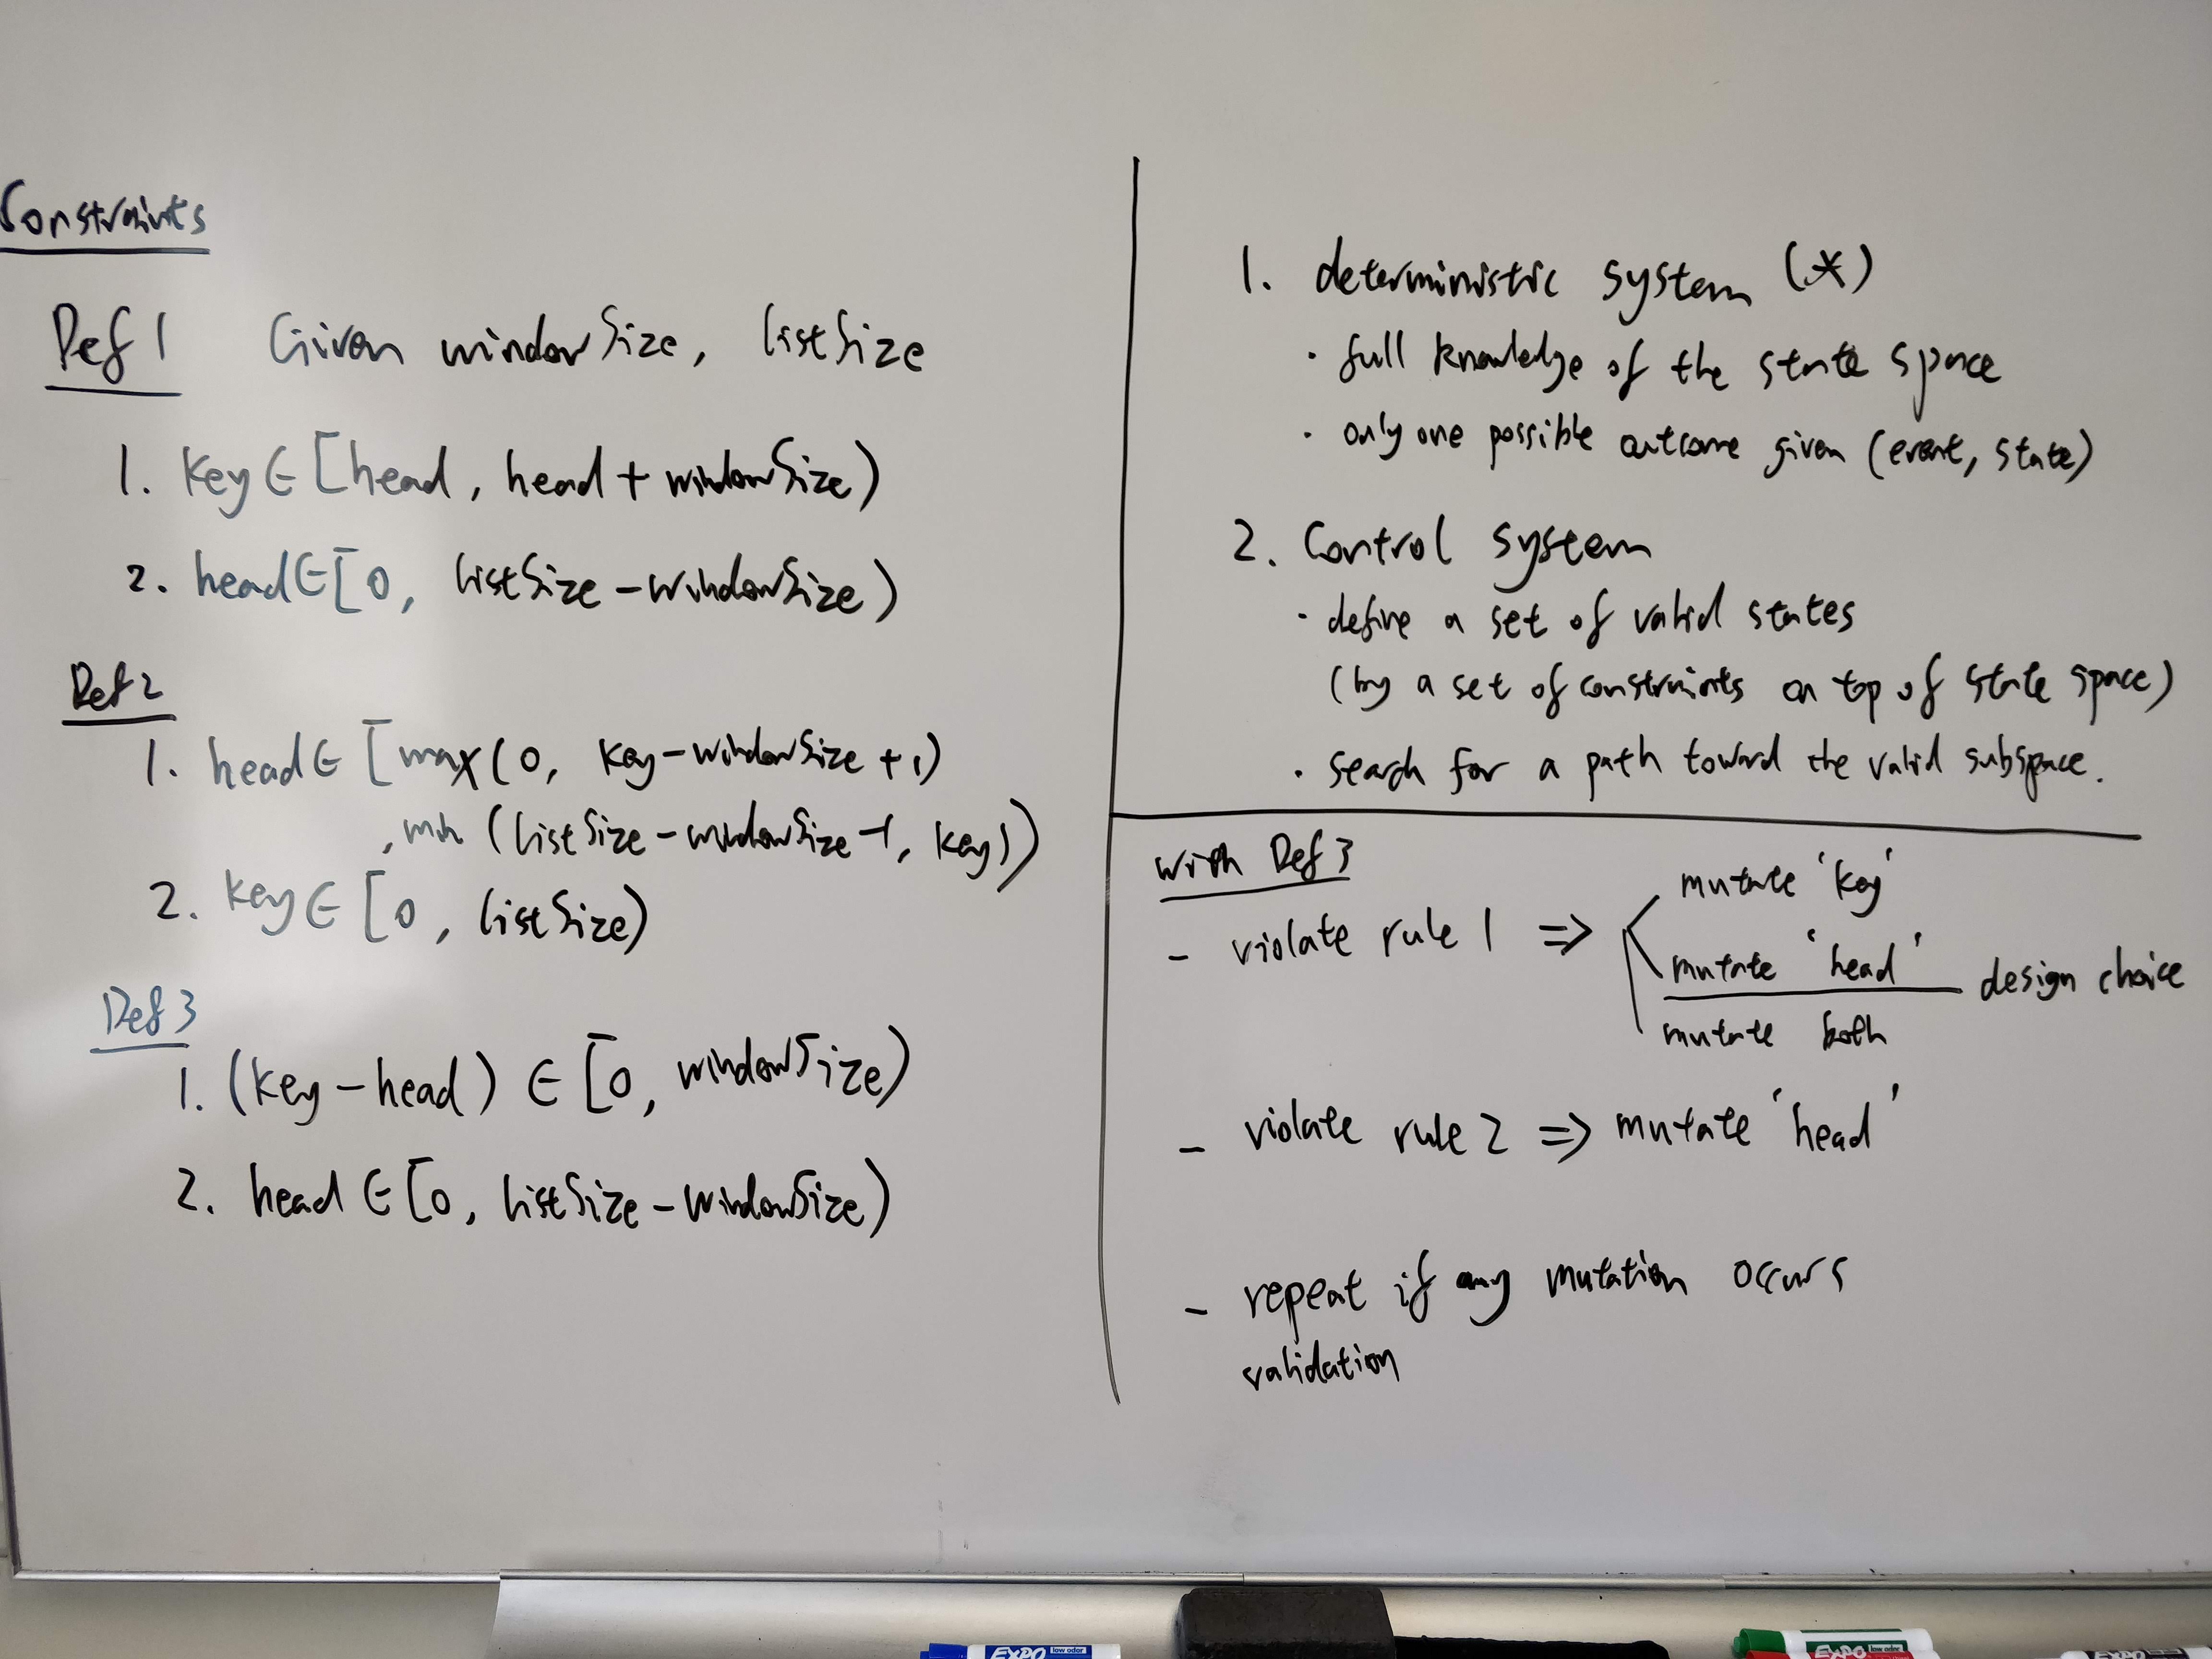 Constraints
Def 1 Given windowSize, listSize
1. key ∈ [head, head + windowSize)
2. head ∈ [0, listSize - windowSize)
Def 2
1. head ∈ [max(0, key - windowSize + 1)
, min (listSize - windowSize - 1, key))
2. key ∈ [0, listSize)
Def 3
1. (key - head) ∈ [0, windowSize)
2. head ∈ [0, listSize - windowSize)
1. deterministic system (*)
· full knowledge of the state space
· only one possible outcome given (event, state)
2. Control system
· define a set of valid states
(by a set of constraints on top of state space)
· search for a path toward the valid subspace.
with Def 3
- violate rule 1 => mutate 'key'
mutate 'head' design choice
mutate both
- violate rule 2 => mutate 'head'
- repeat if any mutation occurs
validation
EXPO low odor
EXPO low odor
EXPO